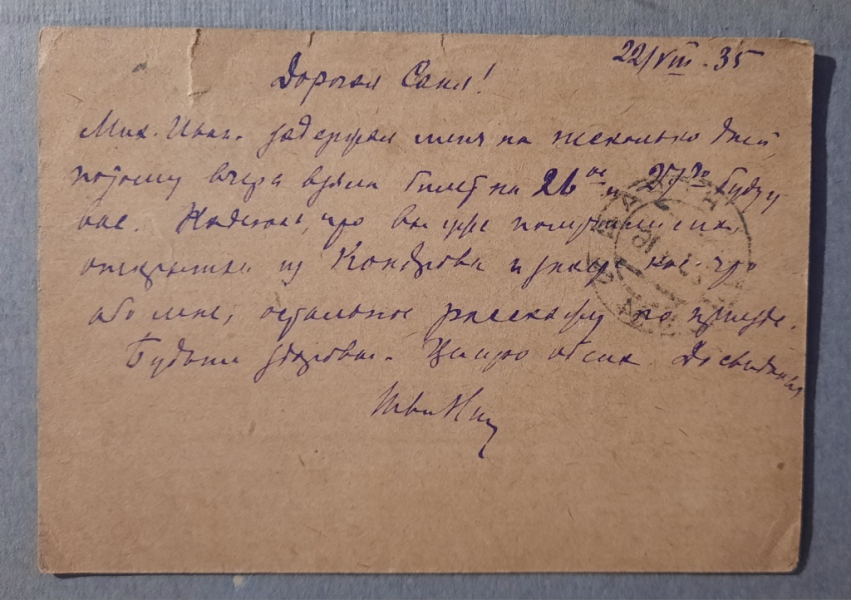 22/VIII-35
Дорогая Саня!
Мих. Иван. задержал меня на несколько дней,
поэтому вчера взяли билет на 26ое и 27го буду у
вас. Надеюсь, что вы уже получили
открытки из Кондрова и знаете кое-что
обо мне, остальное расскажу по приезде.
Будьте здоровы. Целую всех. До свидания